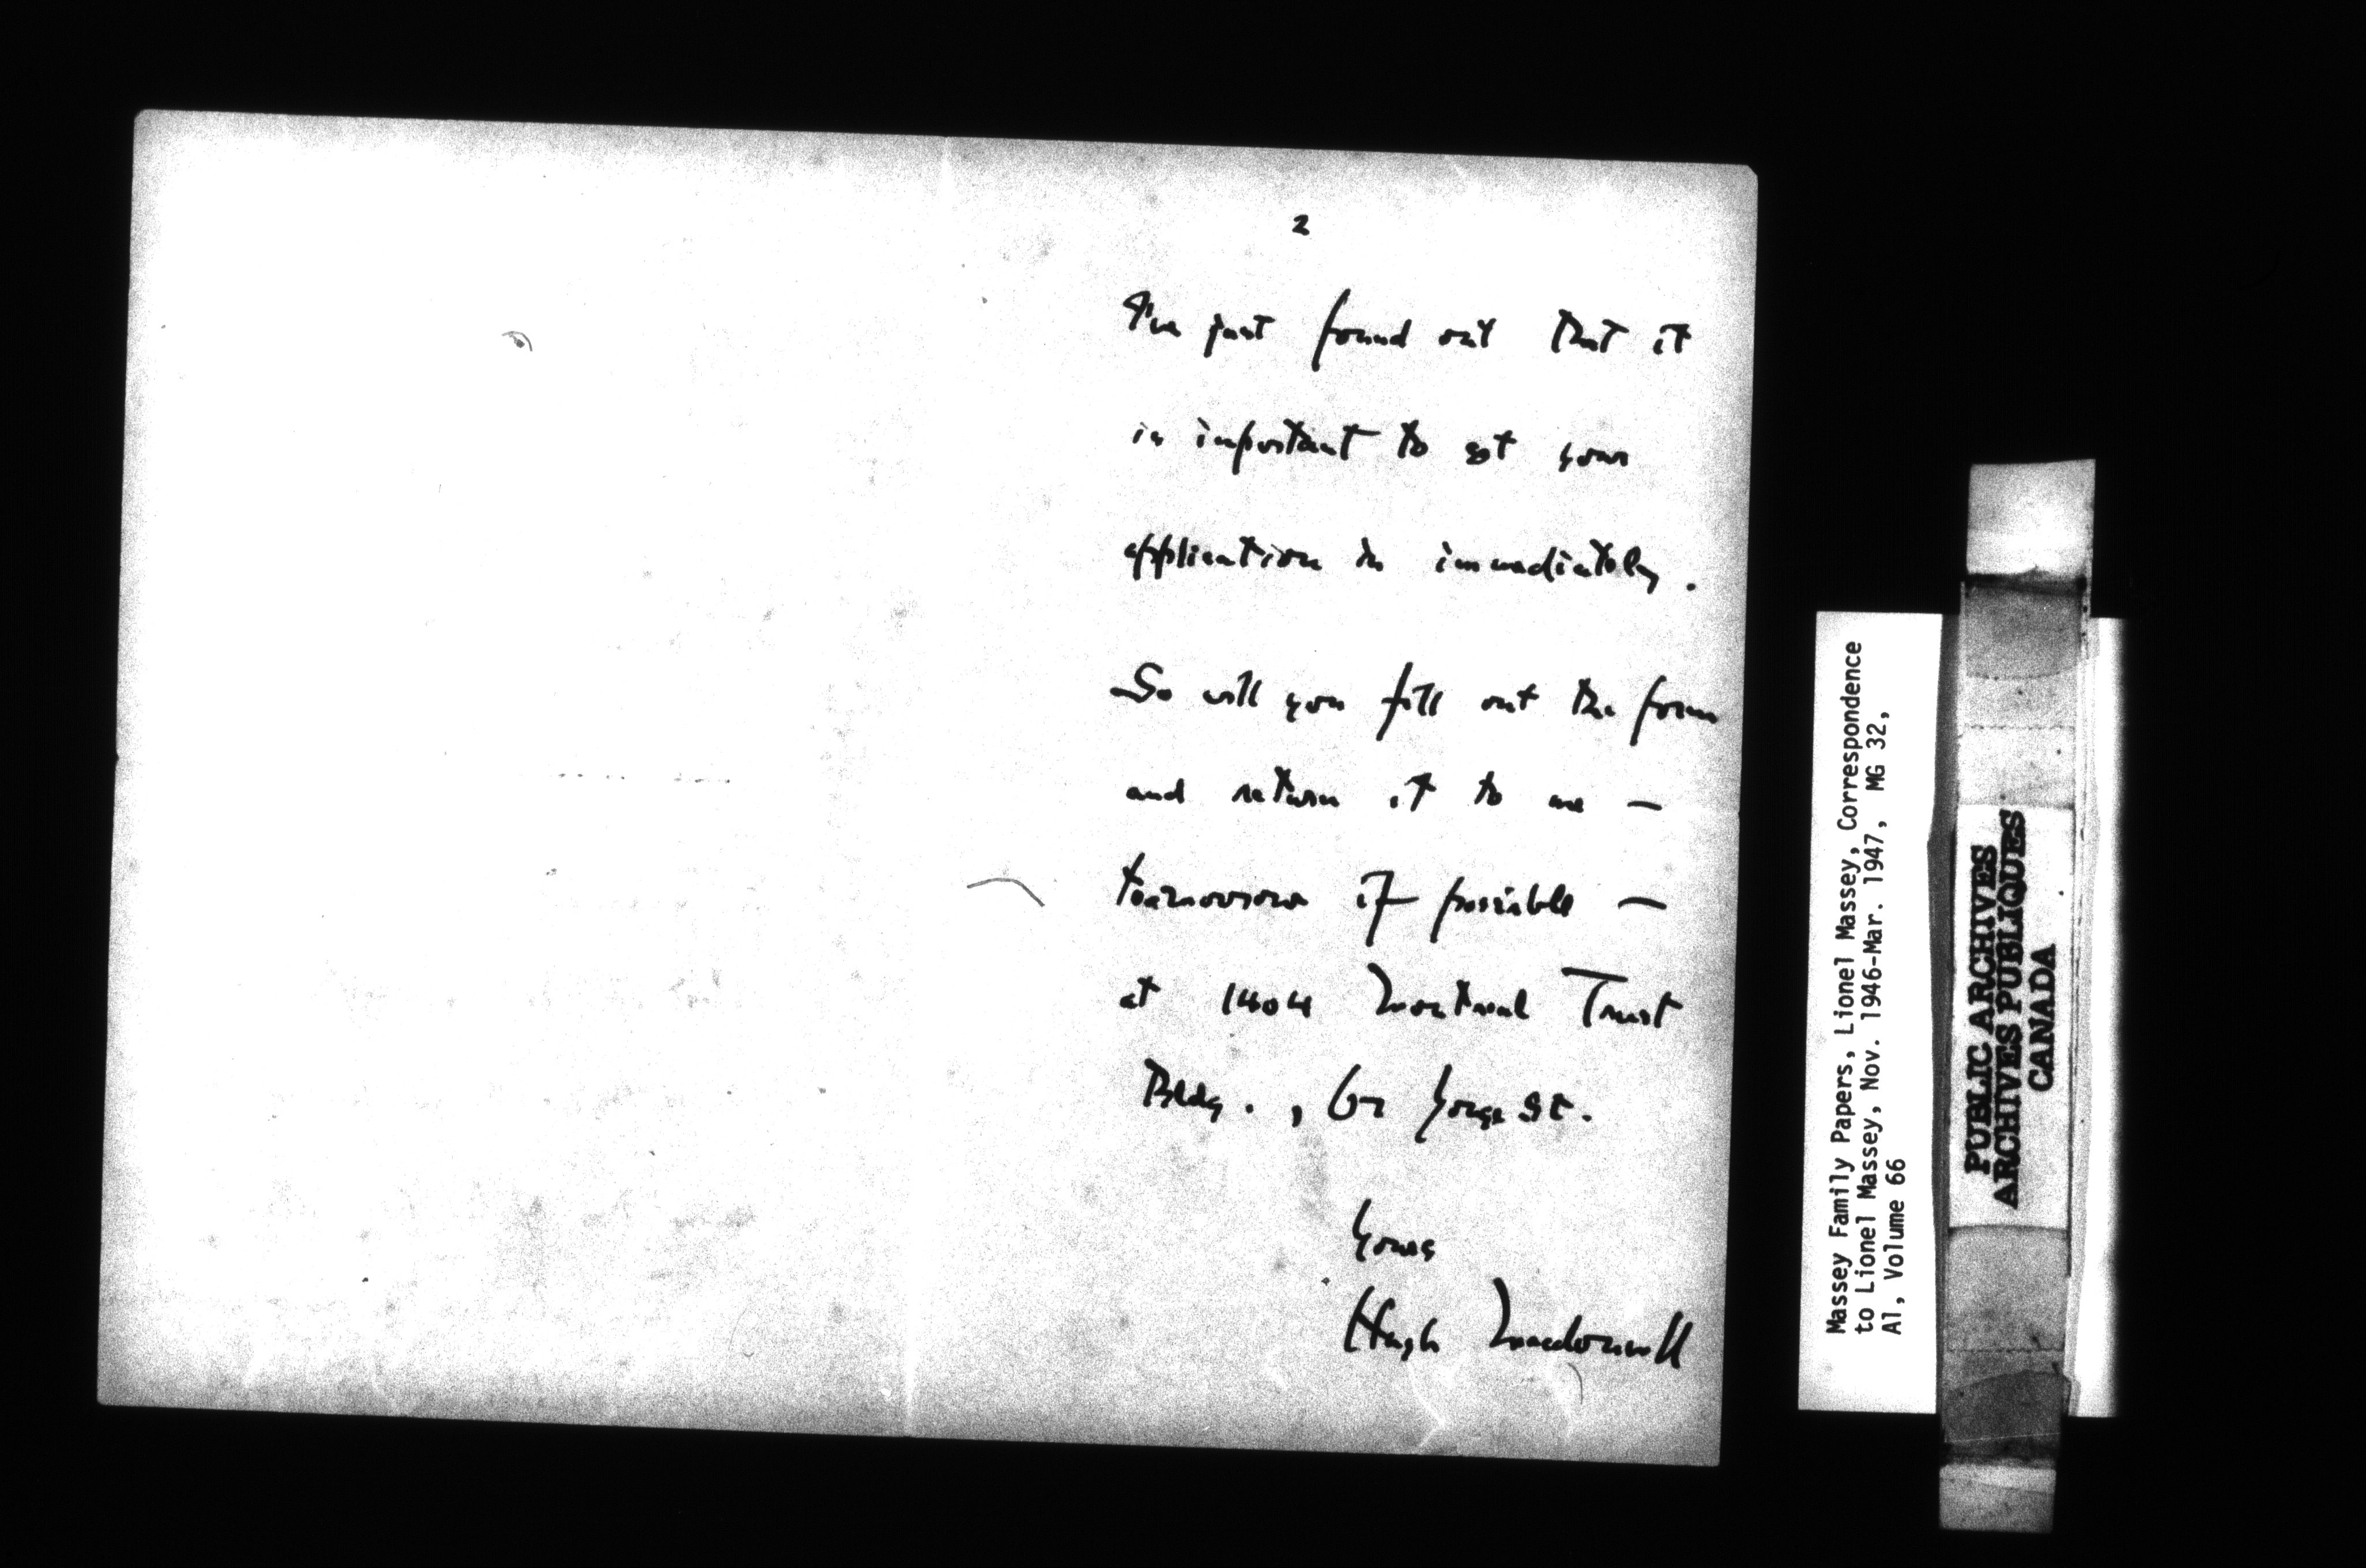 2
I've just found out that it
is important to get your
application in immediately.
So will you fill out the form
and return it to me —
tomorrow if possible —
at 1404 Montreal Trust
Bldg., 67 Yonge St.
Yours
Hugh Macdonnell
Massey Family Papers, Lionel Massey, Correspondence
to Lionel Massey, Nov. 1946-Mar. 1947, MG 32,
A1, Volume 66
PUBLIC ARCHIVES
ARCHIVES PUBLIQUES
CANADA